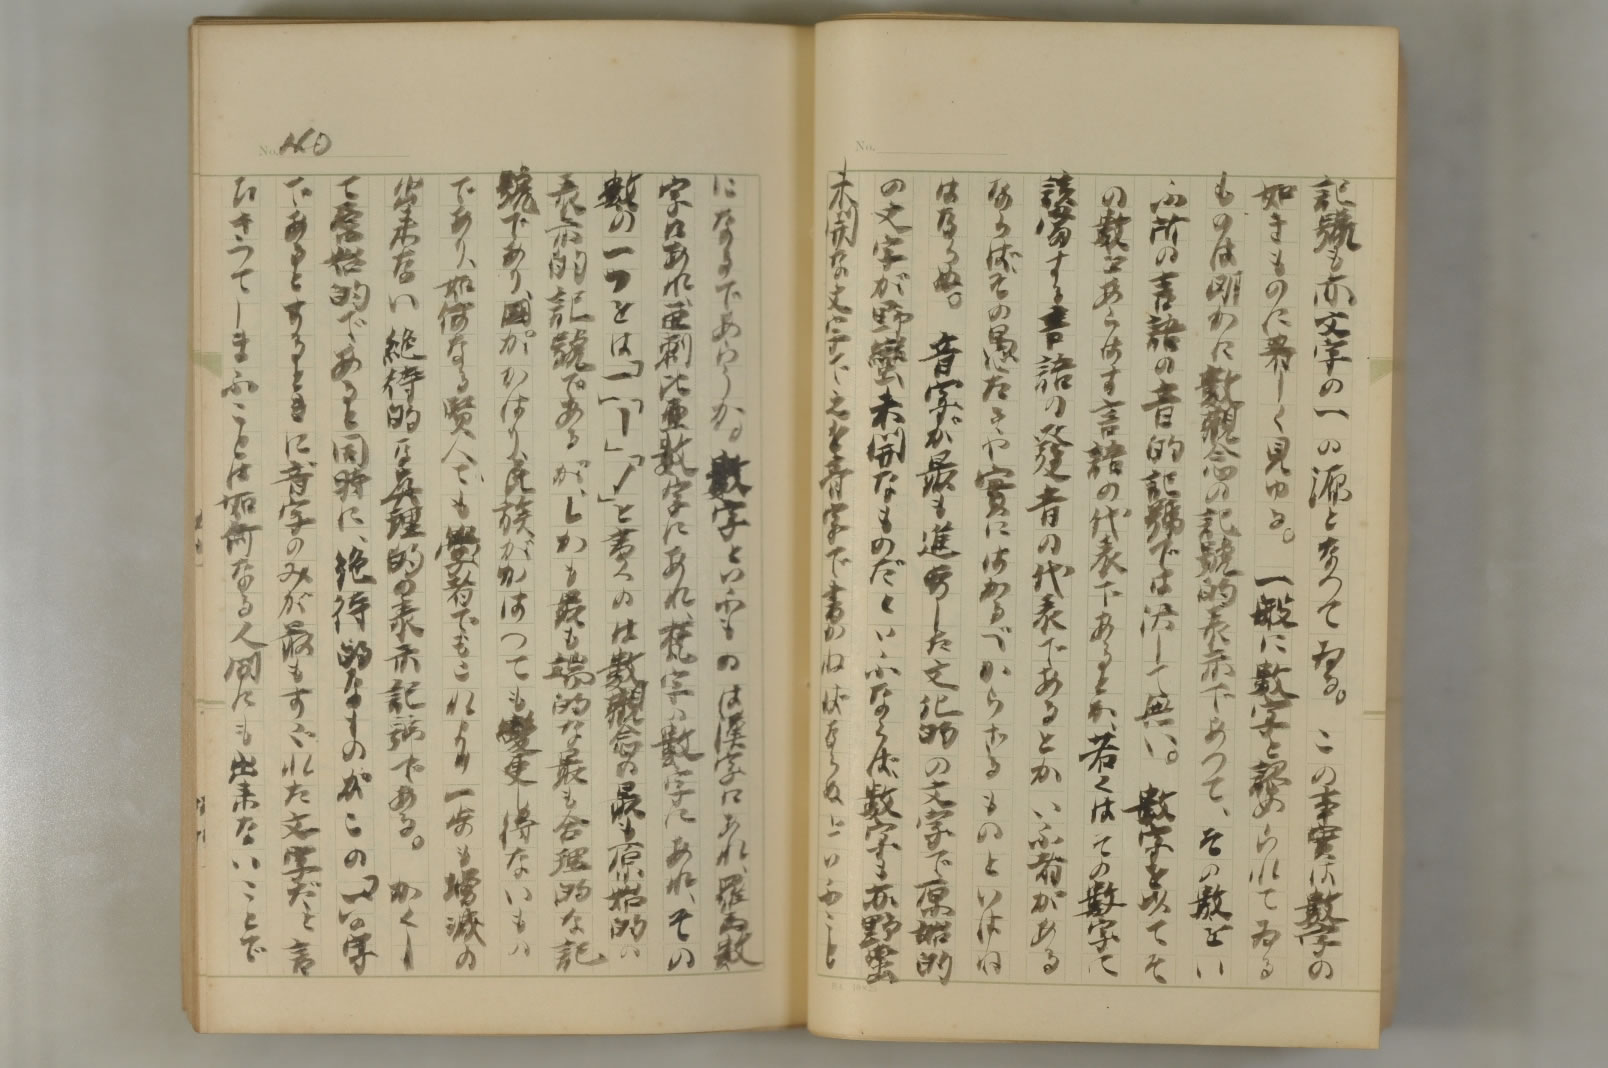 記號も亦文字の一の源となつてゐる。この事實は數字の
如きものに著しく見ゆる。一般に數字と認められてゐる
ものは明かに數觀念の記號的表示であつて、その數をい
ふ所の言語の音的記號では決して無い。數字を以てそ
の數をあらはす言語の代表であるとか、若くはその數字に
該當する言語の發音の代表であるとかいふ者がある
ならばその愚だきや實にはかるべからざるものといはね
はならぬ。音字が最も進歩した文化的の文字で原始的
の文字が野蠻未開なものだといふならば、數字も亦野蠻
未開な文字で之を音字で書かねばならぬといふこと
No.
No. 160
になるであらうか。數字といふものは漢字にあれ、羅馬數
字にあれ、亜剌比亜數字にあれ、梵字の數字にあれ、その
數の一つをば「一」「I」「1」と書くのは數觀念の最も原始的の
表示的記號であるが、しかも最も端的な最も合理的な記
號であり、國がかはり、民族がかはつても變更し得ないもの
であり、如何なる賢人でも學者でもこれより一歩も増減の
出來ない絶待的な眞理的の表示記號である。かくし
て原始的であると同時に、絶待的なものがこの「一」の字
であるとするときに音字のみが最もすぐれた文字だと言
ひきつてしまふことは如何なる人間にも出來ないことで